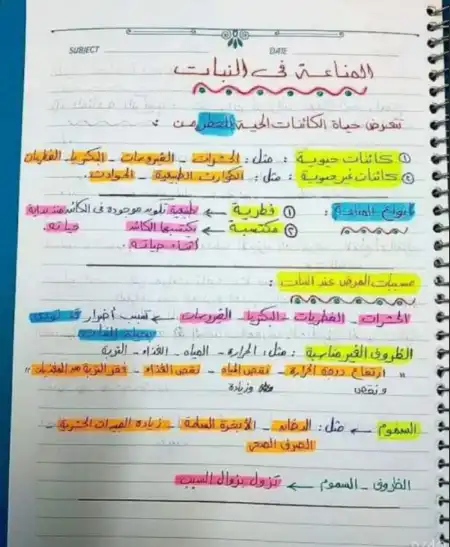 SUBJECT DATE
المناعة في النبات
تتعرض حياة الكائنات الحية للخطر من :
① كائنات حيوية : مثل : الحشرات - الفيروسات - البكتريا - الفطريات
② كائنات غير حيوية : مثل : الكوارث الطبيعية - الحوادث.
أنواع المناعة : ① فطرية ← طبيعية تكون موجودة في الكائن منذ بداية حياته.
② مكتسبة ← يكتسبها الكائن أثناء حياته.
مسببات المرض عند النبات :
الحشرات - الفطريات - البكتريا - الفيروسات ← تسبب أضرار قد تؤدي
الظروف الغير مناسبة : مثل : الحرارة - المياه - الغذاء - التربة
" ارتفاع درجة الحرارة - نقص المياه - نقص الغذاء - فقر التربة من المغذيات "
ونقص وزيادة
السموم ← مثل : الدخان - الأبخرة السامة - زيادة المبيدات الحشرية -
الصرف الصحي
الظروف - السموم ← تزول بزوال السبب